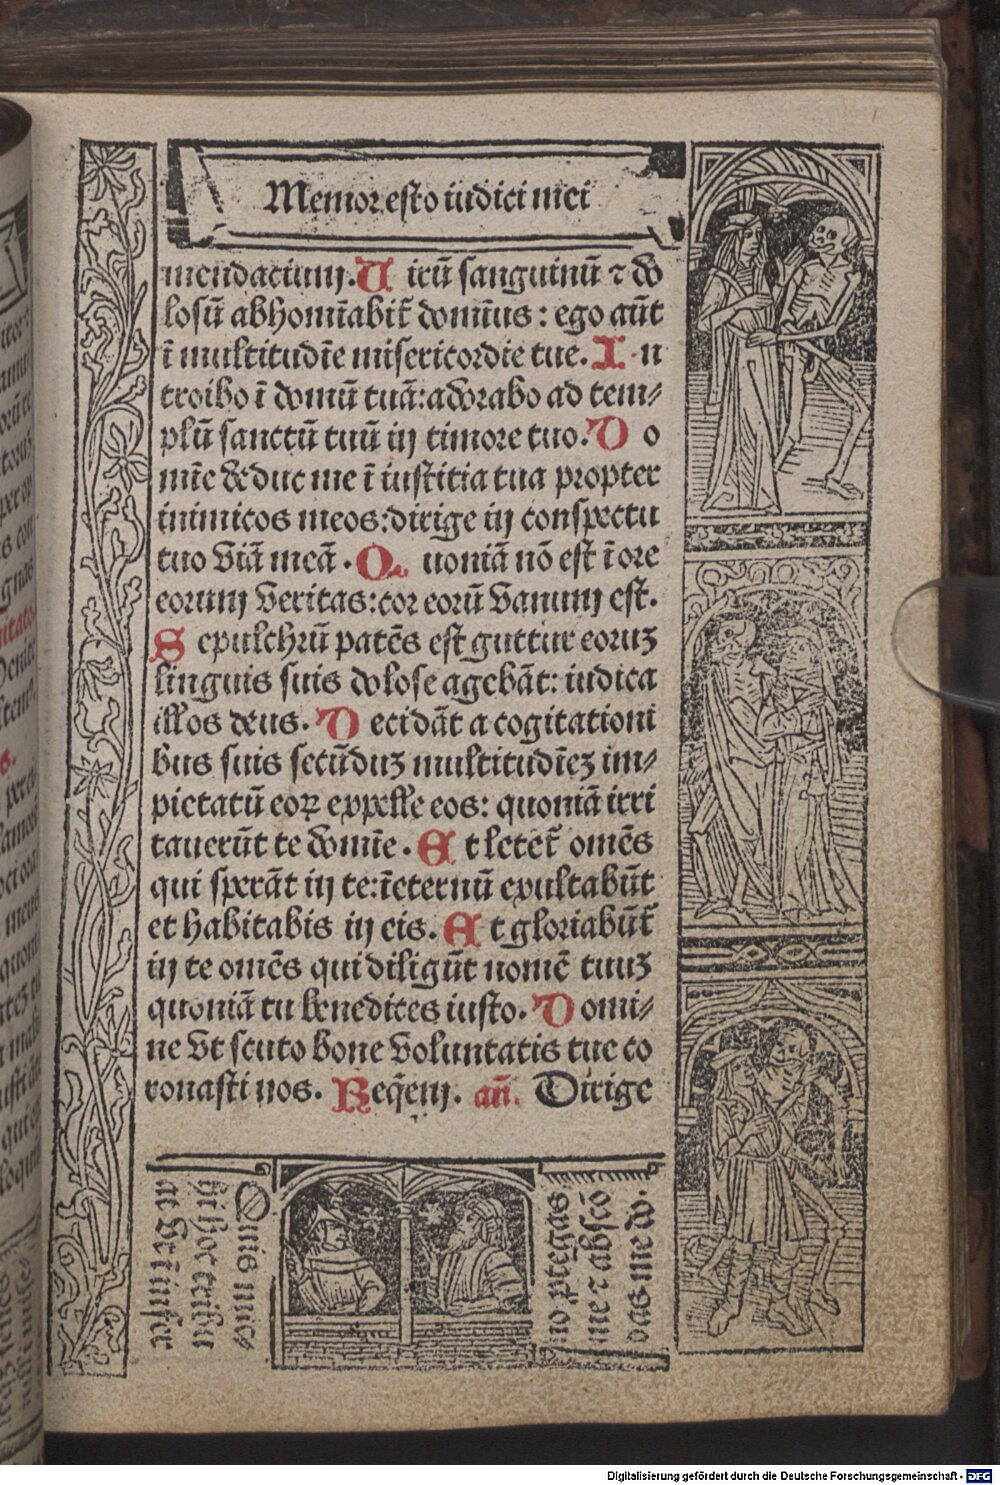 Memor esto iudicii mei
mendacium. Uirū sanguinū ⁊ do
losū abhomīabit̄ domīus: ego aūt
ī multitudīe misericordie tue. In
troibo ī domū tuā: adorabo ad tem⸗
plū sanctū tuū in timore tuo. Do
mīe deduc me ī iustitia tua propter
inimicos meos: dirige in conspectu
tuo viā meā. Quoniā nō est ī ore
eorum veritas: cor eorū vanum est.
Sepulchrū patēs est guttur eoruꝫ
linguis suis dolose agebāt: iudica
illos deus. Decidāt a cogitationi
bus suis secūduꝫ multitudīeꝫ im⸗
pietatū eoꝝ expelle eos: quoniā irri
tauerūt te domīe. Et letet̄ omēs
qui sperāt in te: ī eternū exultabūt
et habitabis in eis. Et gloriabūt̄
in te omēs qui diligūt nomē tuuꝫ
quoniā tu benedices iusto. Domi⸗
ne vt scuto bone voluntatis tue co
ronasti nos. Req̄em. an̄. Dirige
at vt ī infer
bi hoc tribu
Quis mic
no ꝓtegas
me ⁊ abscō
das me do.
Digitalisierung gefördert durch die Deutsche Forschungsgemeinschaft - DFG